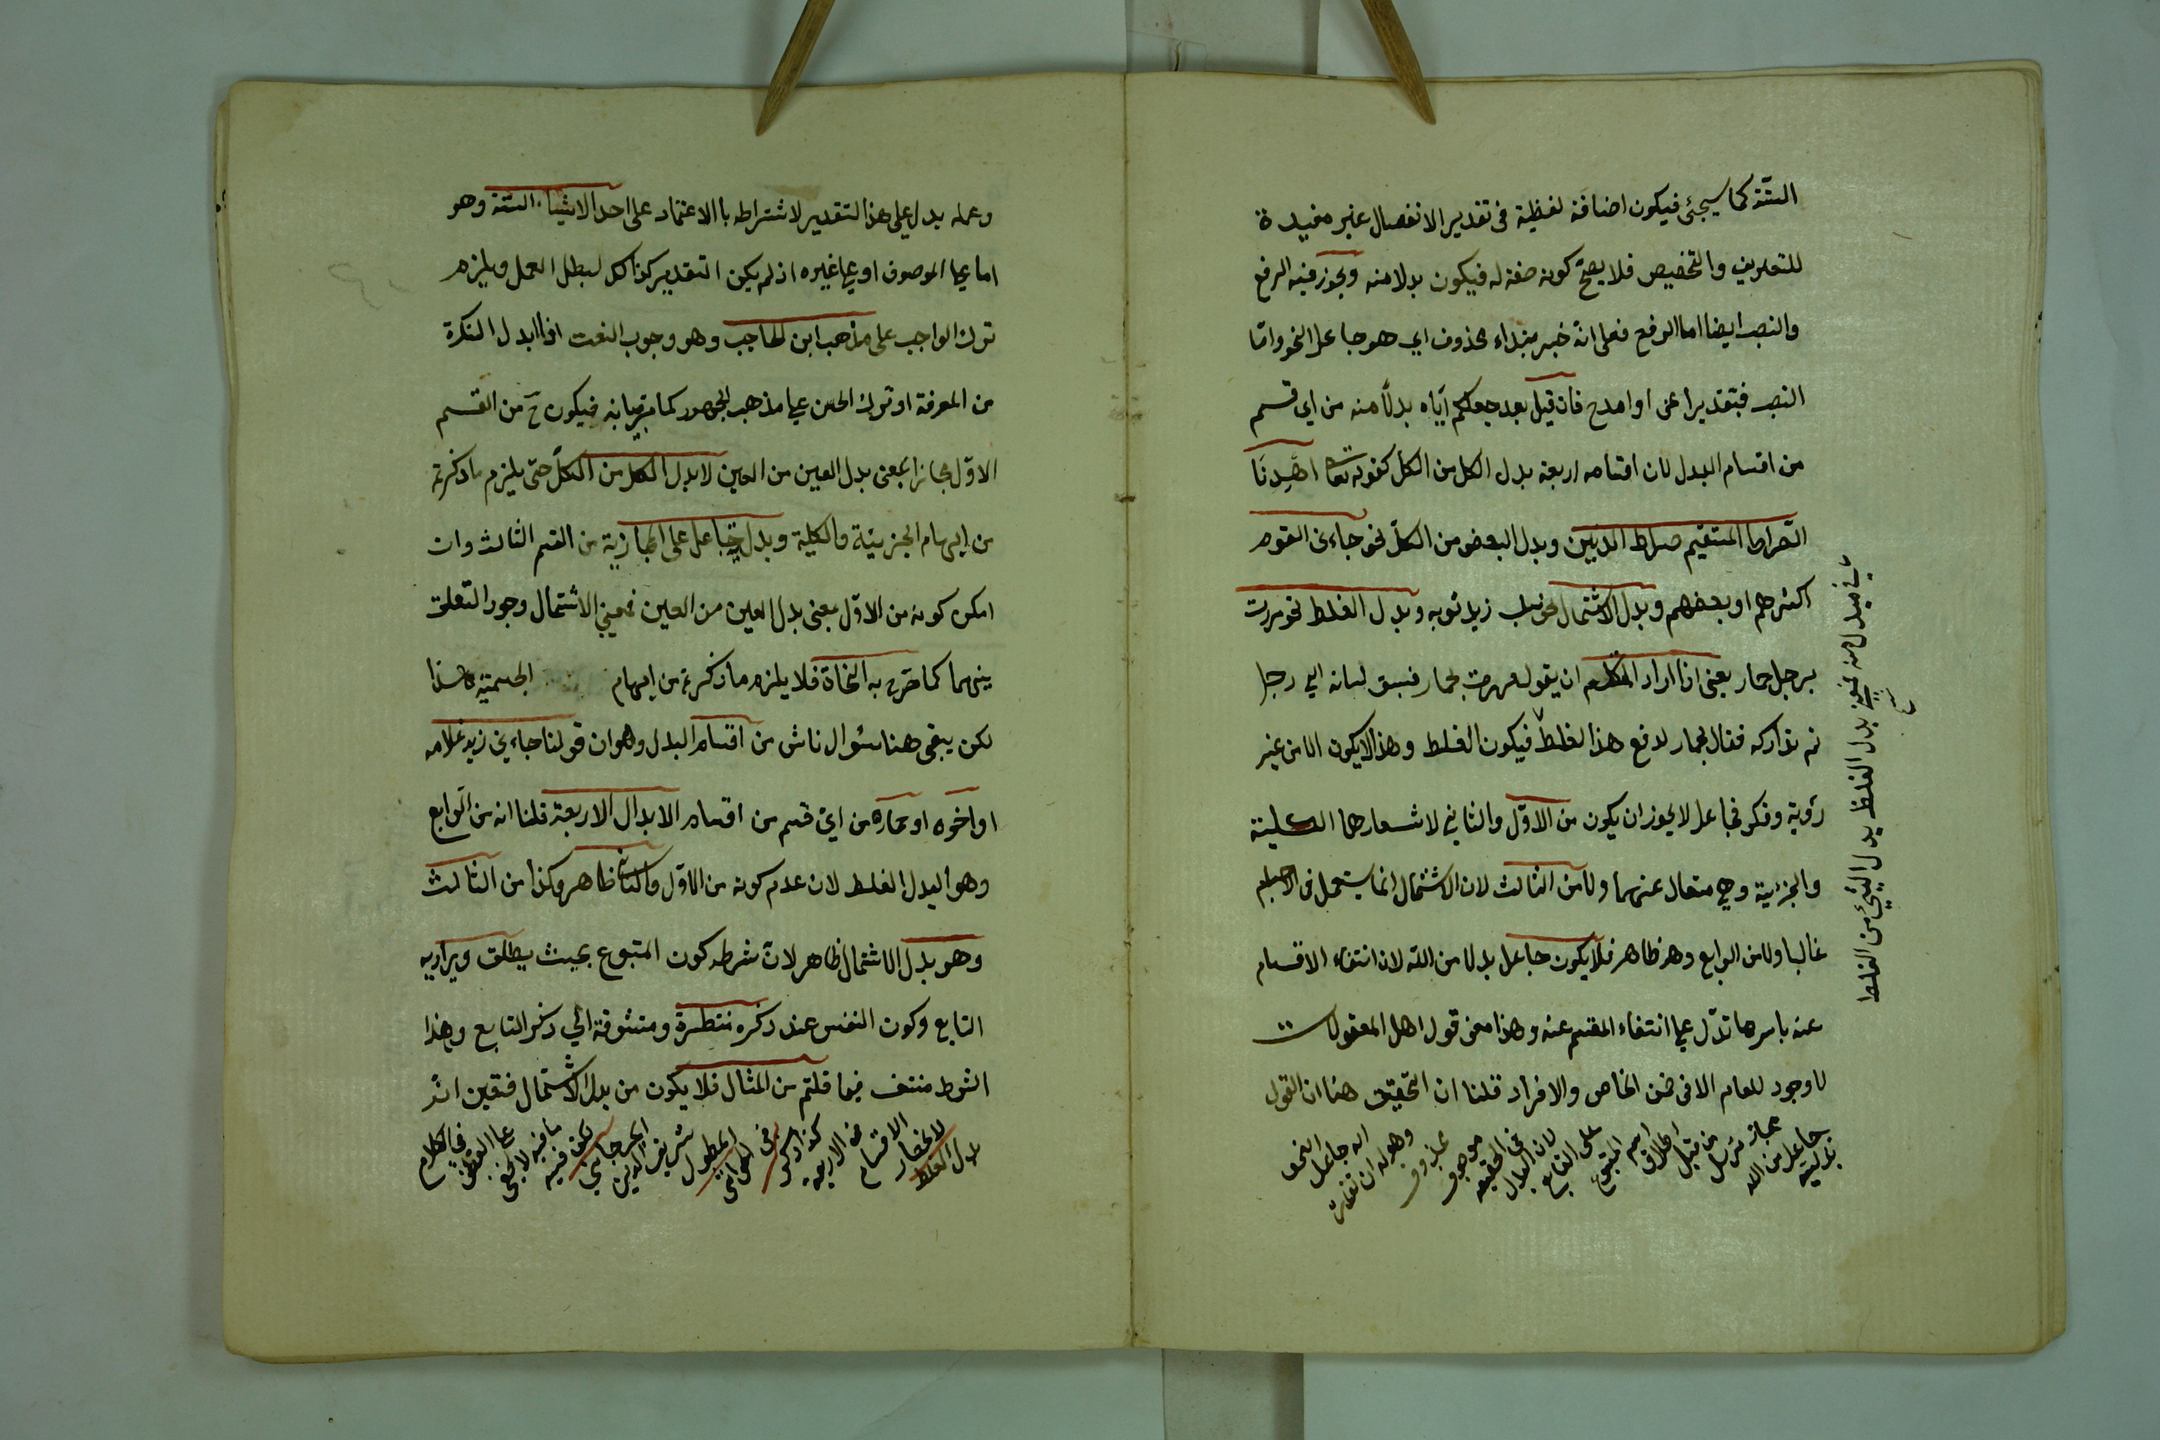 الستة كما سيجئ فيكون اضافة لفظية فى تقدير الانفصال غير مفيدة
للتعريف والتخصيص فلا يصح كونه صفة له فيكون بدلا منه ويجوز فيه الرفع
والنصب ايضا اما الرفع فعلى انه خبر مبتداء محذوف اي هو جاعل النحو وامّا
النصب فبتقدير اعنى او امدح فان قيل بعد جعلكم ايّاه بدلاً منه من اي قسم
من اقسام البدل لان اقسامه اربعة بدل الكل من الكل كقوله تعا اهدنا
الصراط المستقيم صراط الذين وبدل البعض من الكلّ نحو جاءنى القوم
اكثرهم او بعضهم وبدل الاشتمال نحو سلب زيد ثوبه وبدل الغلط نحو مررت
برجل حمار يعنى اذا اراد المتكلم ان يقول مررت بحمار فسبق لسانه الي رجل
ثم تداركه فقال بحمار لدفع هذا الغلط فيكون الغلط وهذا لا يكون الا من غير
رؤية وفكر فجاعل لا يجوز ان يكون من الاوّل والثاني لاشعارها الكلية
والجزئية وهي متعال عنهما ولا من الثالث لان الاشتمال انما يستعمل فى
غالبا ولا من الرابع وهو ظاهر فلا يكون جاعل بدلا من الله لان انتفاء الاقسام
عنه باسرها تدّل علي انتفاء المقسم عنه وهذا معنى قول اهل المعقولات
لا وجود للعام الا فى ضمن الخاص والافراد قلنا ان التحقيق هنا ان القول
جاعل من الله مجاز مرسل من قبيل اطلاق اسم المتبوع على التابع لان البدل فى الحقيقة موصوف محذوف وهو له ان تقدير اله جاعل النحو
بدل الغلط بدل الشئ من الغلط
وعمله يدل على هذا التقدير لاشتراطه باالاعتماد على احد الاشياء الستة وهو
اما علي الموصوف او علي غيره اذ لم يكن التقدير كذلك لبطل العمل ويلزم
ترك الواجب على مذهب ابن الحاجب وهو وجوب النعت اذا ابدل النكرة
من المعرفة او ترك الحسن علي مذهب الجمهور كما مر بيانه فيكون ح من القسم
الاوّل مجازا بمعنى بدل العين من العين لا بدل الكل من الكلّ حتى يلزم ما ذكرته
من ايهام الجزئيّة والكلية وبدل جاعل على المجازية من القسم الثالث وان
امكن كونه من الاوّل بمعنى بدل العين من العين فمعنى الاشتمال وجود التعلق
بينهما كما صرّح به النحاة فلا يلزم ما ذكرته من ايهام الجسمية هذا
لكن يبقى هنا سئوال ناش من اقسام البدل وهو ان قولنا جاءني زيد غلامه
او اخوه او حماره من ايّ قسم من اقسام الابدال الاربعة قلنا انه من الرابع
وهو البدل الغلط لان عدم كونه من الاوّل والثانى ظاهر وكذا من الثالث
وهو بدل الاشتمال ظاهر لان شرطه كون المتبوع بحيث يطلق ويراد به
التابع وكون النفس عند ذكره منتظرة ومتشوقة الي ذكر التابع وهذا
الشرط منتف فيما قلتم من المثال فلا يكون من بدل الاشتمال فتعين انه
بدل الغلط لانحصار الاقسام فى الاربعة كذا ذكره فى حواشي المطول شريف الدين الجرجاني لكن فيه ما فيه لا يخفى على الفطن فى الكلام